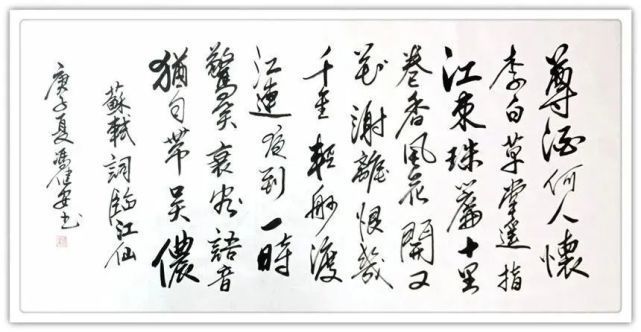 尊酒何人懷
李白草堂遙指
江東珠簾十里
卷香風花開又
花謝離恨幾
千重輕舸渡
江連夜到一時
驚笑衰容語音
猶自帶吳儂
蘇軾詞臨江仙
庚子夏馮健安书